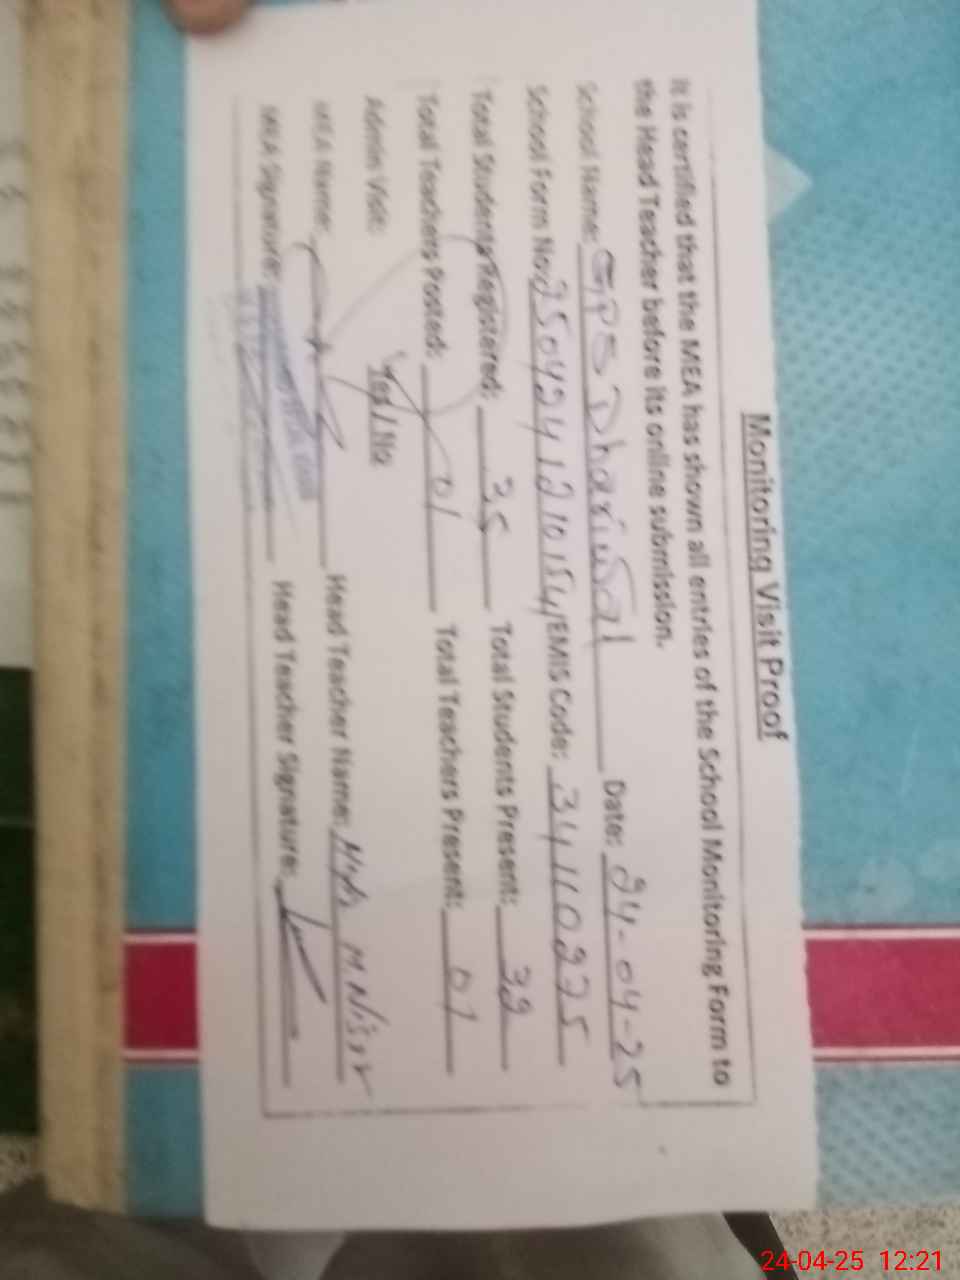 Monitoring Visit Proof
It is certified that the MEA has shown all entries of the School Monitoring Form to
the Head Teacher before its online submission.
School Name: GPS Dhariwal Date: 24-04-25
School Form No: 2504241210154 EMIS Code: 34110275
Total Students Registered: 35 Total Students Present: 32
Total Teachers Posted: 01 Total Teachers Present: 01
Admin Visit: Yes / No
MEA Name: Head Teacher Name: M. Nisar
MEA Signature: Head Teacher Signature:
24-04-25 12:21